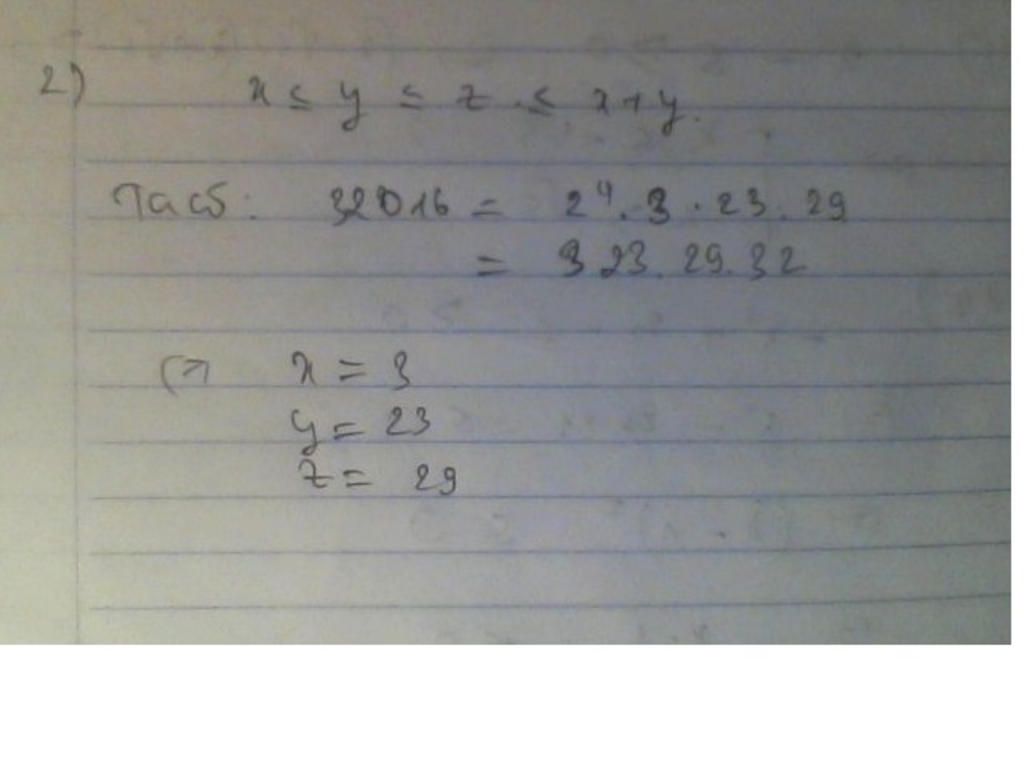 2) x ≤ y ≤ z ≤ x + y.
Ta có: 32016 = 2⁴. 3 . 23 . 29
= 3 23. 29. 32
x = 3
y = 23
z = 29